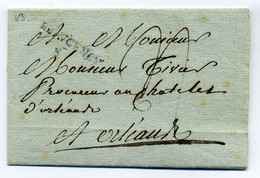 A Monsieur
Monsieur Tivier
Procureur au chatelet
d'orléans
A orléans